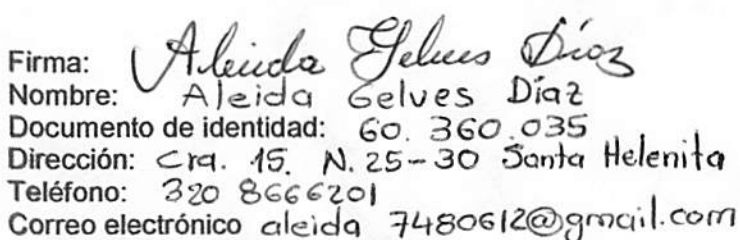 Firma: Aleida Gelves Díaz
Nombre: Aleida Gelves Díaz
Documento de identidad: 60. 360.035
Dirección: Cra. 15. N. 25-30 Santa Helenita
Teléfono: 320 8666201
Correo electrónico aleida 7480612@gmail.com